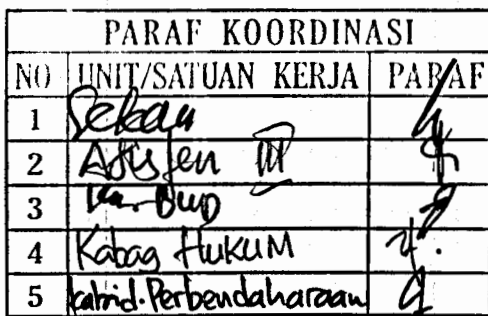 PARAF KOORDINASI
NO UNIT/SATUAN KERJA PARAF
1 Sekda
2 Asisten III
3
4 Kabag HUKUM
5 Kabid. Perbendaharaan